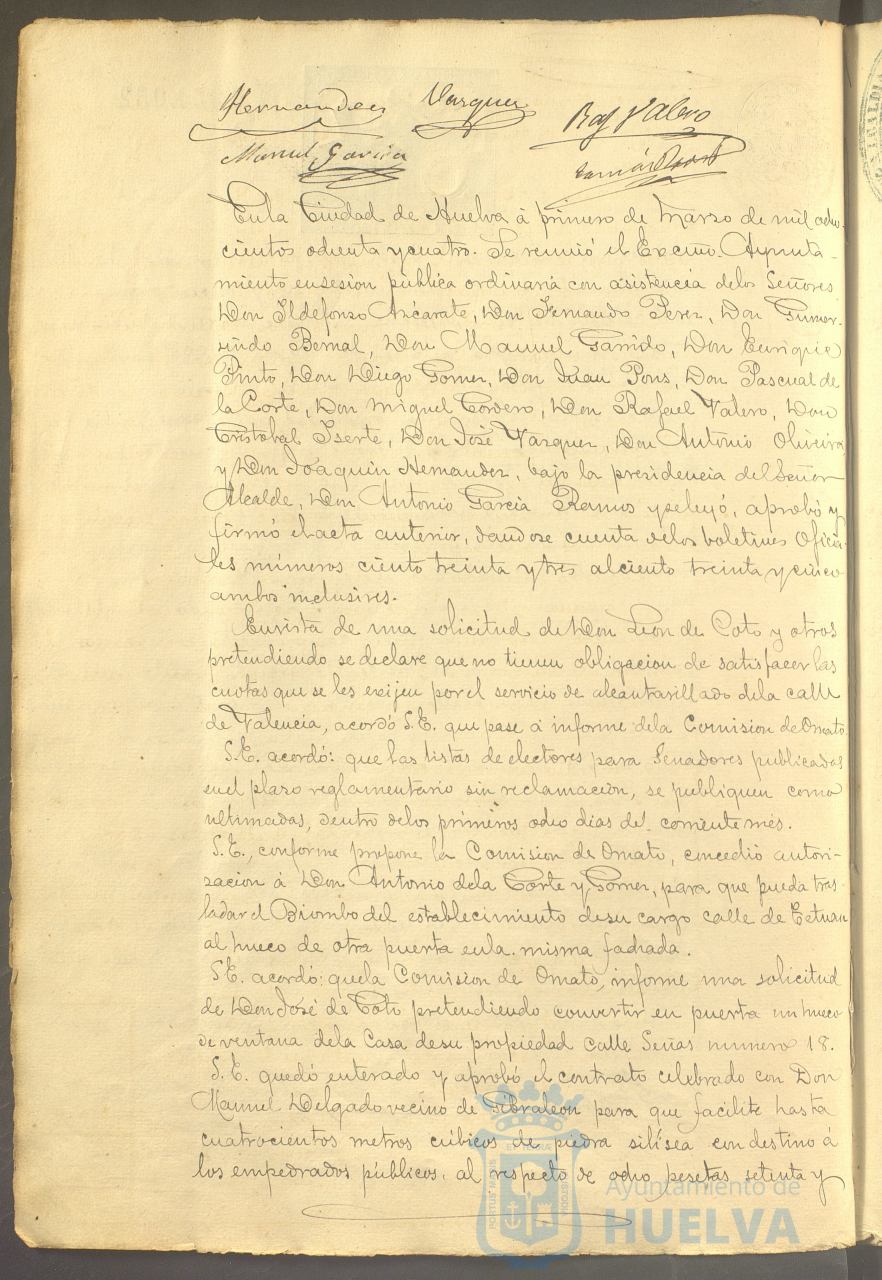 Hernandez Vazquez Raf Valero
Manuel Garcia
En la Ciudad de Huelva á primero de Marzo de mil ocho-
cientos ochenta y cuatro. Se reunió el Excmo. Ayunta-
miento en sesion pública ordinaria con asistencia de los Señores
Don Ildefonso Azcarate, Don Fernando Perez, Don Gumer-
sindo Bernal, Don Manuel Garrido, Don Enrique
Pinto, Don Diego Gomez, Don Juan Pons, Don Pascual de
la Corte, Don Miguel Cordero, Don Rafael Valero, Don
Cristobal Iserte, Don José Vazquez, Don Antonio Oliveira
y Don Joaquin Hernandez, bajo la presidencia del Señor
Alcalde, Don Antonio Garcia Ramos y se leyó, aprobó y
firmó el acta anterior, dandose cuenta de los boletines Oficia-
les números ciento treinta y tres al ciento treinta y cinco
ambos inclusives.
En vista de una solicitud de Don Leon de Coto y otros
pretendiendo se declare que no tienen obligacion de satisfacer las
cuotas que se les exijen por el servicio de alcantarillado de la calle
de Valencia, acordó S.E. que pase á informe de la Comision de Ornato.
S.E. acordó: que las listas de electores para Senadores publicadas
en el plazo reglamentario sin reclamación, se publiquen como
ultimadas, dentro de los primeros ocho dias del corriente més.
S.E., conforme propone la Comision de Ornato, concedió autori-
zacion á Don Antonio de la Corte y Gomez, para que pueda tras-
ladar el Biombo del establecimiento de su cargo calle de Tetuan
al hueco de otra puerta en la misma fachada.
S.E. acordó: que la Comision de Ornato, informe una solicitud
de Don José de Coto pretendiendo convertir en puerta un hueco
de ventana de la Casa de su propiedad calle Señas numero 18.
S.E. quedó enterado y aprobó el contrato celebrado con Don
Manuel Delgado vecino de Gibraleon para que facilite hasta
cuatrocientos metros cúbicos de piedra silísea con destino á
los empedrados públicos, al respecto de ocho pesetas setenta y
Ayuntamiento de
HUELVA